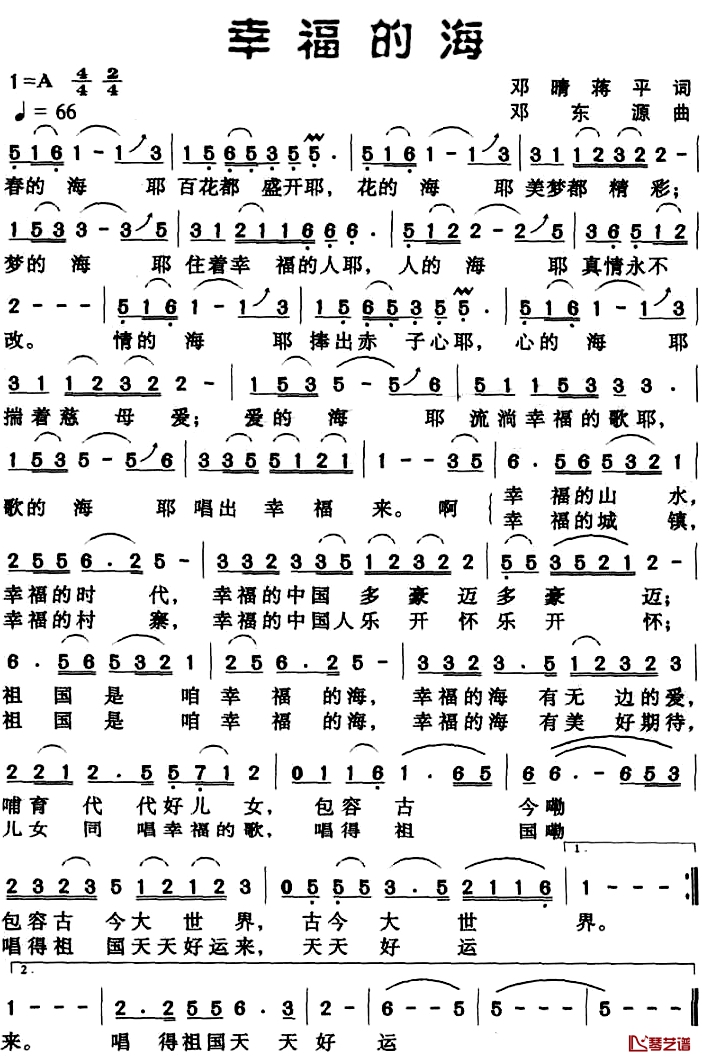 幸福的海
1=A 4/4 2/4
邓晴蒋平词
♩=66
邓东源曲
5 1 6 1 - 1 3 | 1 5 6 5 3 5 5. | 5 1 6 1 - 1 3 | 3 1 1 2 3 2 2 2 - |
春的 海 耶 百花都 盛开耶, 花的 海 耶 美梦都 精 彩;
1 5 3 3 - 3 5 | 3 1 2 1 1 6 6 6. | 5 1 2 2 - 2 5 | 3 6 5 5 1 2 |
梦的 海 耶 住着幸 福的人耶, 人的 海 耶 真情永不
2 - - - | 5 1 6 1 - 1 3 | 1 5 6 5 3 5 5. | 5 1 6 1 - 1 3 |
改。 情的 海 耶 捧出赤 子心耶, 心的 海 耶
3 1 1 2 3 2 2 2 - | 1 5 3 5 - 5 6 | 5 1 1 1 5 3 3 3 . |
揣着慈 母 爱; 爱的 海 耶 流淌幸福的歌耶,
1 5 3 5 - 5 6 | 3 3 5 5 1 2 1 | 1 - - 3 5 | 6 . 5 6 5 3 2 1 |
歌的 海 耶 唱出 幸 福 来。 啊 幸 福的山 水,
幸 福的城 镇,
2 5 5 6 . 2 5 - | 3 3 2 3 3 5 1 2 3 2 2 | 5 5 3 5 2 1 2 - |
幸福的时 代, 幸福的中国 多 豪 迈 多 豪 迈;
幸福的村 寨, 幸福的中国人乐 开 怀 乐 开 怀;
6 . 5 6 5 3 2 1 | 2 5 6 . 2 5 - | 3 3 2 3 . 5 1 2 3 2 2 |
祖 国 是 咱 幸 福 的海, 幸福的海 有无 边的爱,
祖 国 是 咱 幸 福 的海, 幸福的海 有美 好期待,
2 2 1 2 . 5 5 7 1 2 | 0 1 1 6 1 . 6 5 | 6 - . 6 5 3 |
哺育 代 代好儿 女, 包容 古 今嘞
儿女 同 唱幸福的歌, 唱得 祖 国嘞
1.
2 3 2 3 5 1 2 1 2 3 | 0 5 5 5 3 . 5 2 1 1 6 | 1 - - - :|
包容古 今大 世 界, 古今 大 世 界。
唱得祖 国天天好运来, 天天 好 运
2.
1 - - - | 2 . 2 5 5 6 . 3 | 2 - | 6 - - 5 | 5 - - - | 5 - - - |
来。 唱 得祖国天 天 好 运
琴艺谱